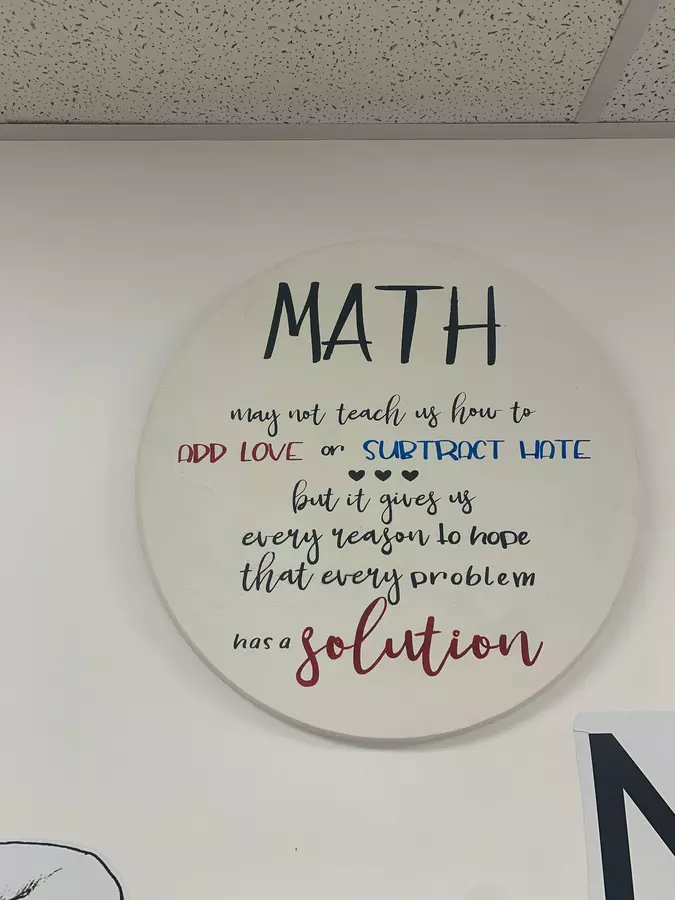 MATH
may not teach us how to
ADD LOVE or SUBTRACT HATE
but it gives us
every reason to hope
that every problem
has a solution
N